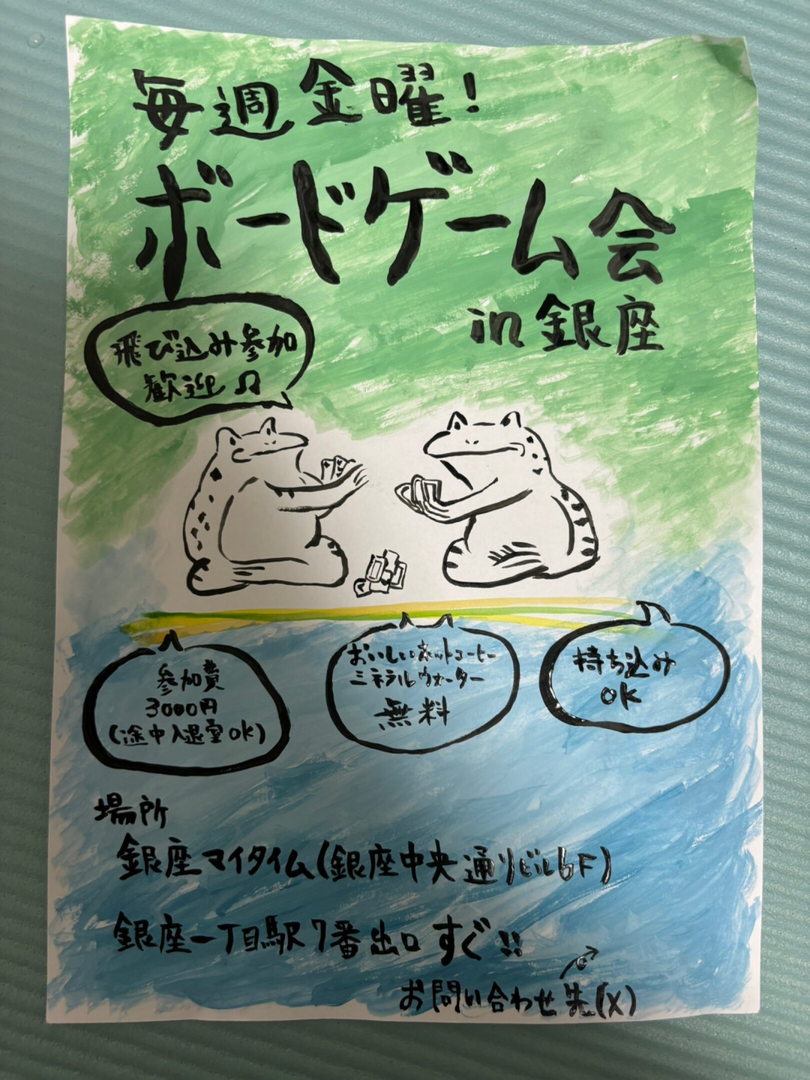 毎週金曜!
ボードゲーム会
in 銀座
飛び込み参加
歓迎♫
参加費
3000円
(途中入退室OK)
おいしいホットコーヒー
ミネラルウォーター
無料
持ち込み
OK
場所
銀座マイタイム(銀座中央通りビル6F)
銀座一丁目駅7番出口 すぐ!!
お問い合わせ先(X)